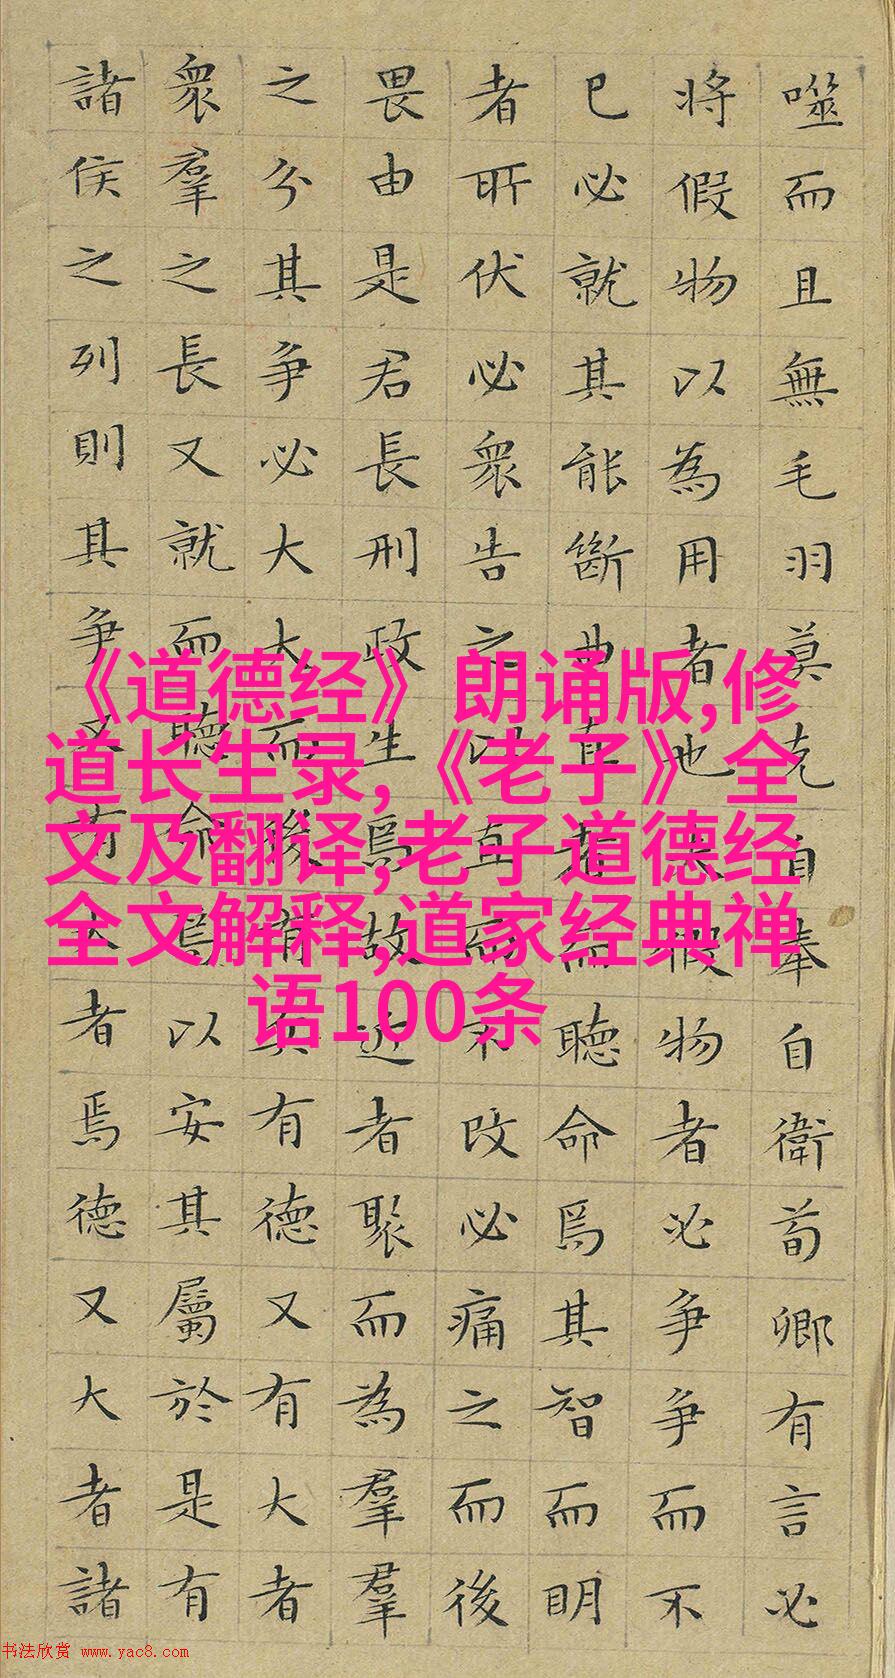 噬而且無毛羽莫克自奉自衛荀卿有言必
将假物以為用者也夫假物者必爭爭而不
已必就其能斷曲直者而聽命焉其智而明
者所伏必衆告之以直而不改必痛之而後
畏由是君長刑政生焉故近者聚而為羣羣
之分其爭必大大而後有兵有德又有大者
衆羣之長又就而聽命焉以安其屬於是有
諸侯之列則其爭又有大者焉德又大者諸
《道德经》朗诵版,修
道长生录,《老子》全
文及翻译,老子道德经
全文解释,道家经典禅
语100条
书法欣赏 www.yac8.com